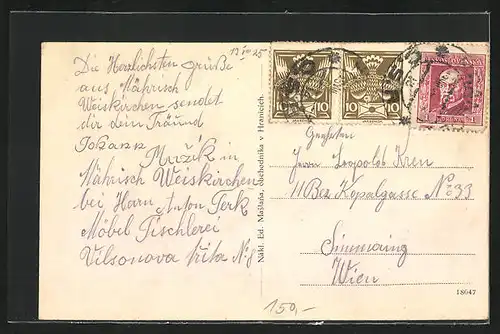 13 VIII 25
Die Herzlichsten grüße
aus Mährisch
Weiskirchen sendet
dir dein Fräund
Johann
Mružík in
Mährisch Weiskirchen
bei Harn Anton Perk
Möbel Tischlerei
Vilsonova Nr. 8
Nákl. Ed. Mašlaňa, obchodníka v Hranicích.
10 10 10 10
Geehrten
Herrn Leopoldt Kren
11 Bez Kopalgasse No 33
Simmering
Wien
18647
150,-